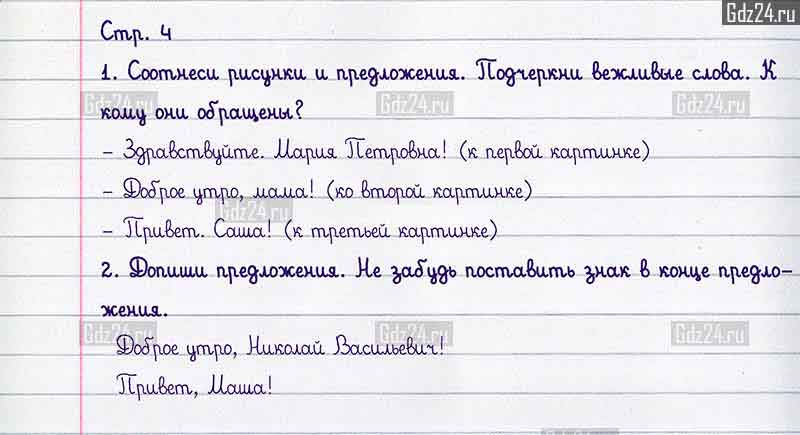 Gdz24.ru
Стр. 4
1. Соотнеси рисунки и предложения. Подчеркни вежливые слова. К
кому они обращены?
Gdz24.ru Gdz24.ru Gdz24.ru
– Здравствуйте. Мария Петровна! (к первой картинке)
– Доброе утро, мама! (ко второй картинке)
Gdz24.ru
– Привет. Саша! (к третьей картинке)
2. Допиши предложения. Не забудь поставить знак в конце предло-
жения.
Gdz24.ru Gdz24.ru Gdz24.ru
Доброе утро, Николай Васильевич!
Привет, Маша!
Gdz24.ru